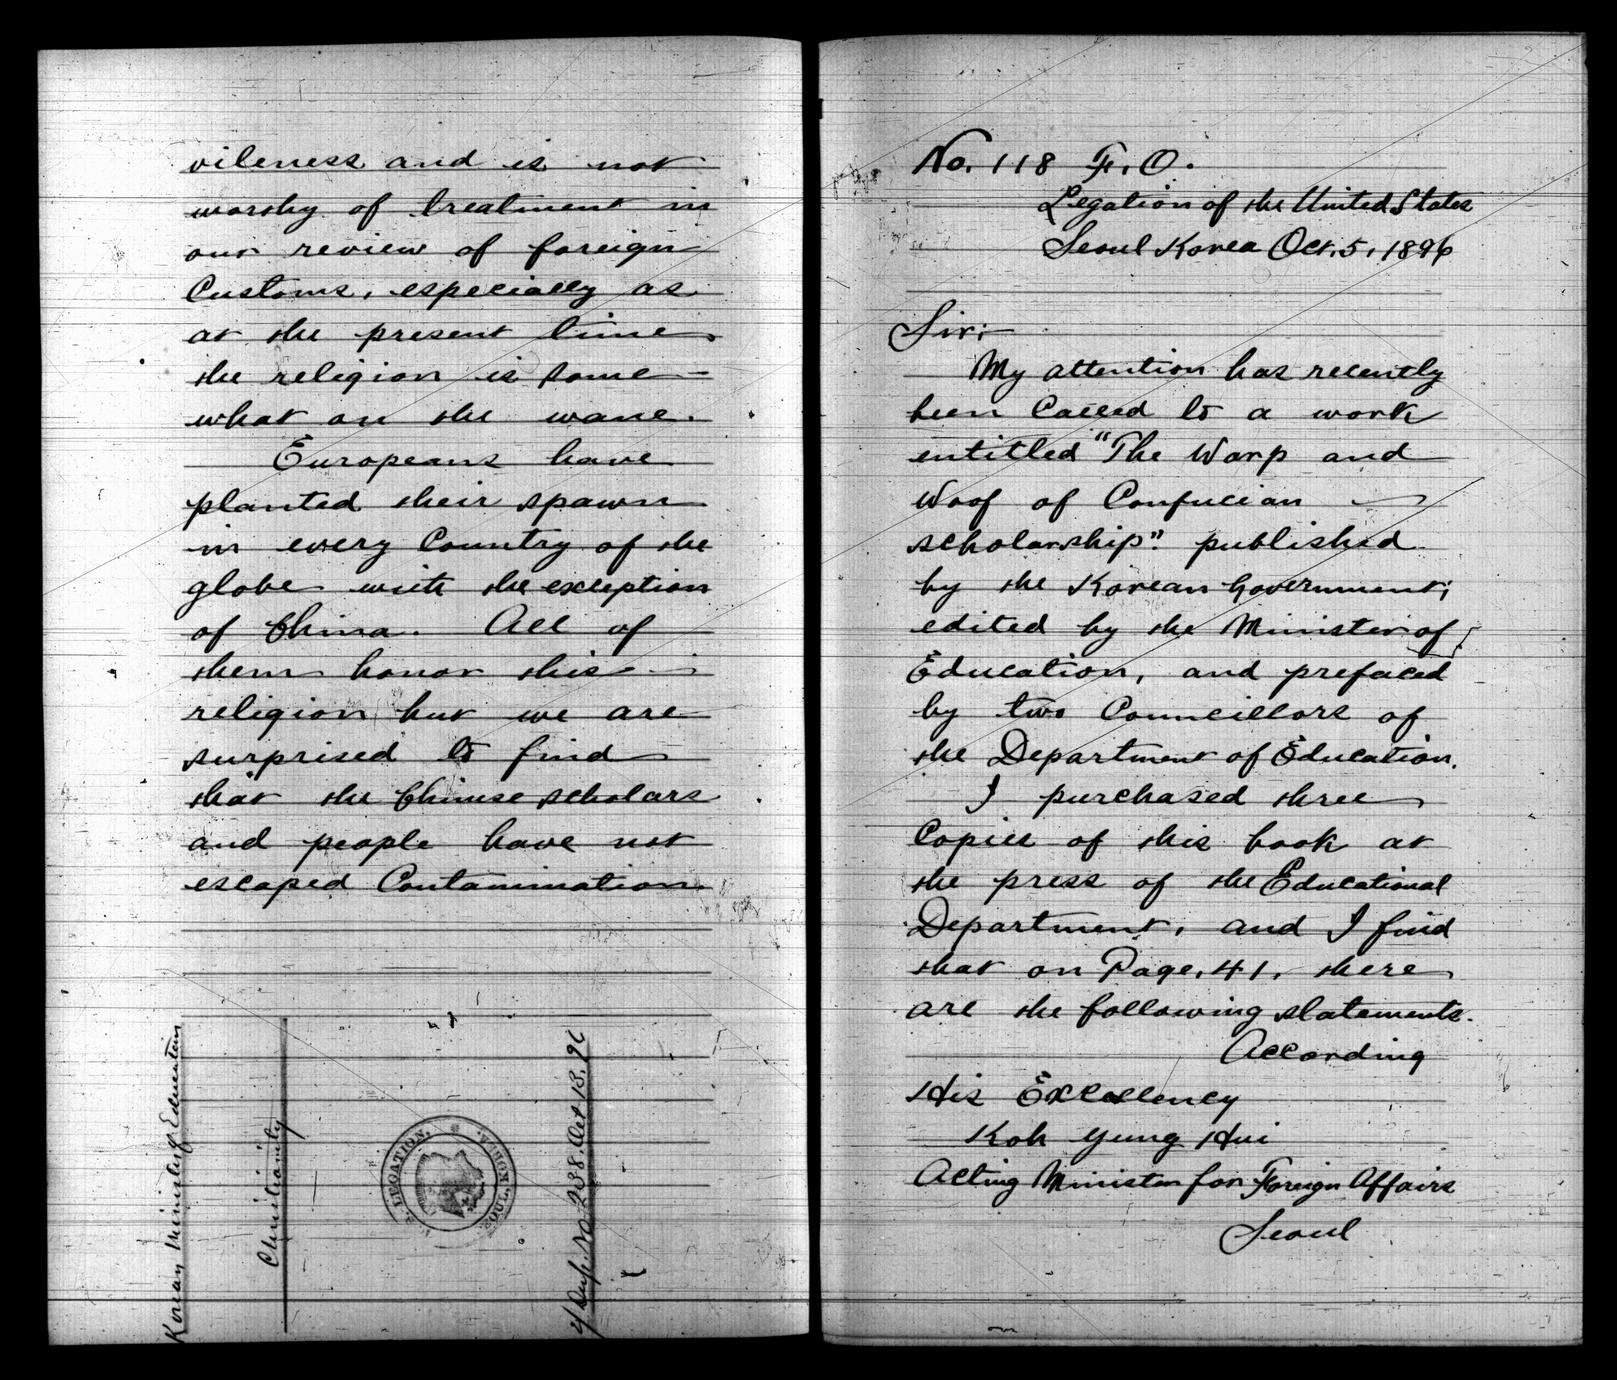 vileness and is not
worthy of treatment in
our review of foreign
Customs, especially as
at the present time
the religion is some-
what on the wane.
Europeans have
planted their spawn
in every Country of the
globe with the exception
of China. All of
them honor this
religion but we are
surprised to find
that the Chinese scholars
and people have not
escaped Contamination.
Korean Minister of Education
Christianity
U.S. LEGATION, SOUL, KOREA.
4/ Dup. No. 238. Oct 13, 96
No. 118 F.O.
Legation of the United States
Seoul Korea Oct. 5, 1896
Sir:
My attention has recently
been Called to a work
entitled "The Warp and
Woof of Confucian
scholarship". published
by the Korean Government;
edited by the Minister of
Education, and prefaced
by two Councillors of
the Department of Education.
I purchased three
Copies of this book at
the press of the Educational
Department, and I find
that on Page, 41, there
are the following statements.
According
His Excellency
Koh Yung Hui
Acting Minister for Foreign Affairs
Seoul